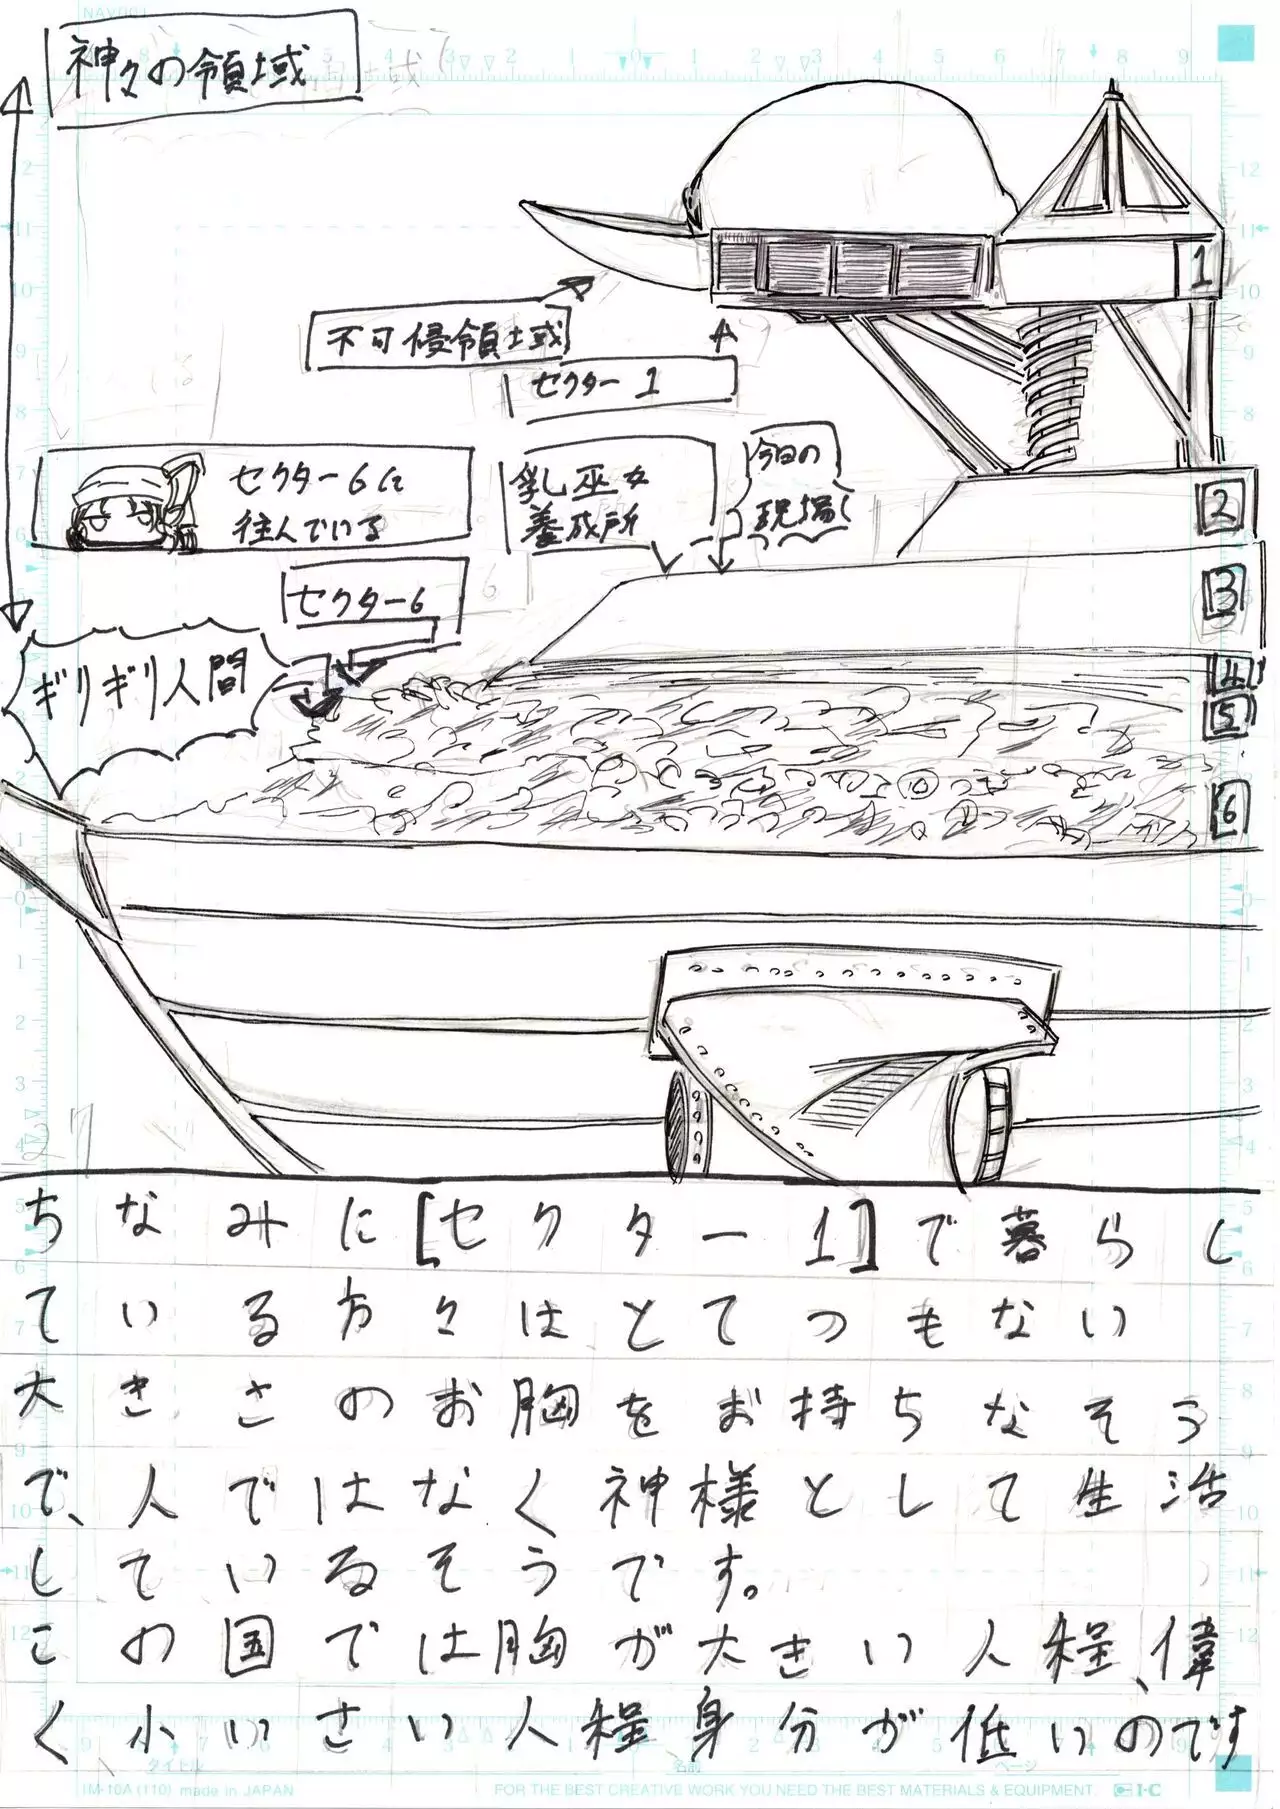 神々の領域
不可侵領域
セクター1
セクター6に
住んでいる
乳巫女
養成所
今日の
現場!
セクター6
ギリギリ人間
1
2
3
4
5
6
ちなみに[セクター1]で暮らし
ている方々はとてつもない
大きさのお胸をお持ちなそう
で、人ではなく神様として生活
しているそうです。
この国では胸が大きい人程、偉
く小いさい人程身分が低いのです
タイトル
名前
ページ
IM-10A (110) made in JAPAN
FOR THE BEST CREATIVE WORK YOU NEED THE BEST MATERIALS & EQUIPMENT.
I·C